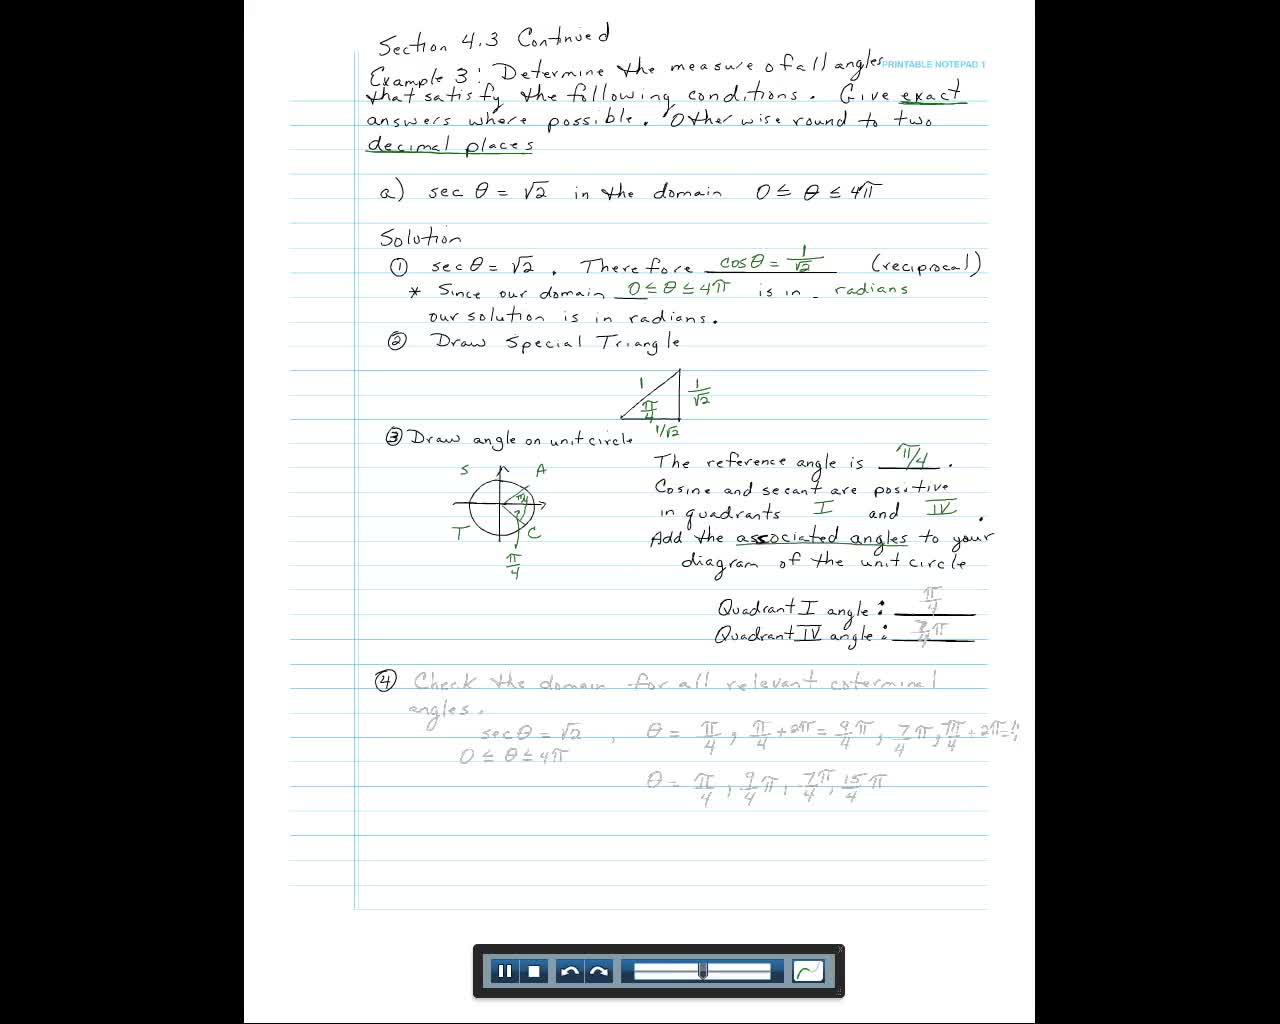 Section 4.3 Continued
PRINTABLE NOTEPAD 1
Example 3: Determine the measure of all angles
that satisfy the following conditions. Give exact
answers where possible. Otherwise round to two
decimal places
a) sec θ = √2 in the domain 0 ≤ θ ≤ 4π
Solution
① sec θ = √2. Therefore cos θ = 1/√2 (reciprocal)
* Since our domain 0 ≤ θ ≤ 4π is in radians
our solution is in radians.
② Draw Special Triangle
1 π/4 1/√2
1/√2
③ Draw angle on unit circle
S A
π/4
T C
π/4
The reference angle is π/4.
Cosine and secant are positive
in quadrants I and IV.
Add the associated angles to your
diagram of the unit circle
Quadrant I angle: π/4
Quadrant IV angle: 7/4 π
④ Check the domain for all relevant coterminal
angles.
sec θ = √2, θ = π/4, π/4 + 2π = 9/4 π, 7/4 π, 7π/4 + 2π =
0 ≤ θ ≤ 4π
θ = π/4, 9/4 π, 7/4 π, 15/4 π